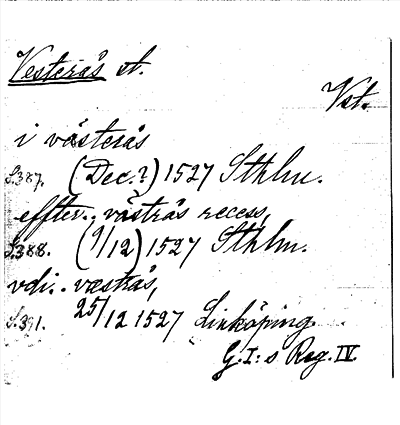 Vesterås st.
Vst.
i västerås
S.387. (Dec.?) 1527 Sthlm.
effter.. västrås recess,
S.388. (9/12) 1527 Sthlm.
vdi.. vestrås,
S.391. 25/12 1527 Linköping.
G.I:s Reg. IV.